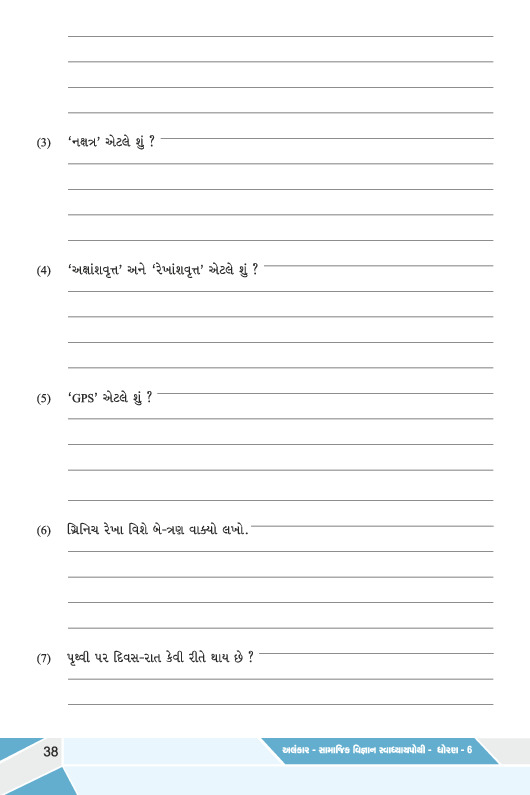 (3) ‘નક્ષત્ર’ એટલે શું ?
(4) ‘અક્ષાંશવૃત્ત’ અને ‘રેખાંશવૃત્ત’ એટલે શું ?
(5) ‘GPS’ એટલે શું ?
(6) ગ્રિનિચ રેખા વિશે બે-ત્રણ વાક્યો લખો.
(7) પૃથ્વી પર દિવસ-રાત કેવી રીતે થાય છે ?
38
અલંકાર - સામાજિક વિજ્ઞાન સ્વાધ્યાયપોથી - ધોરણ - 6